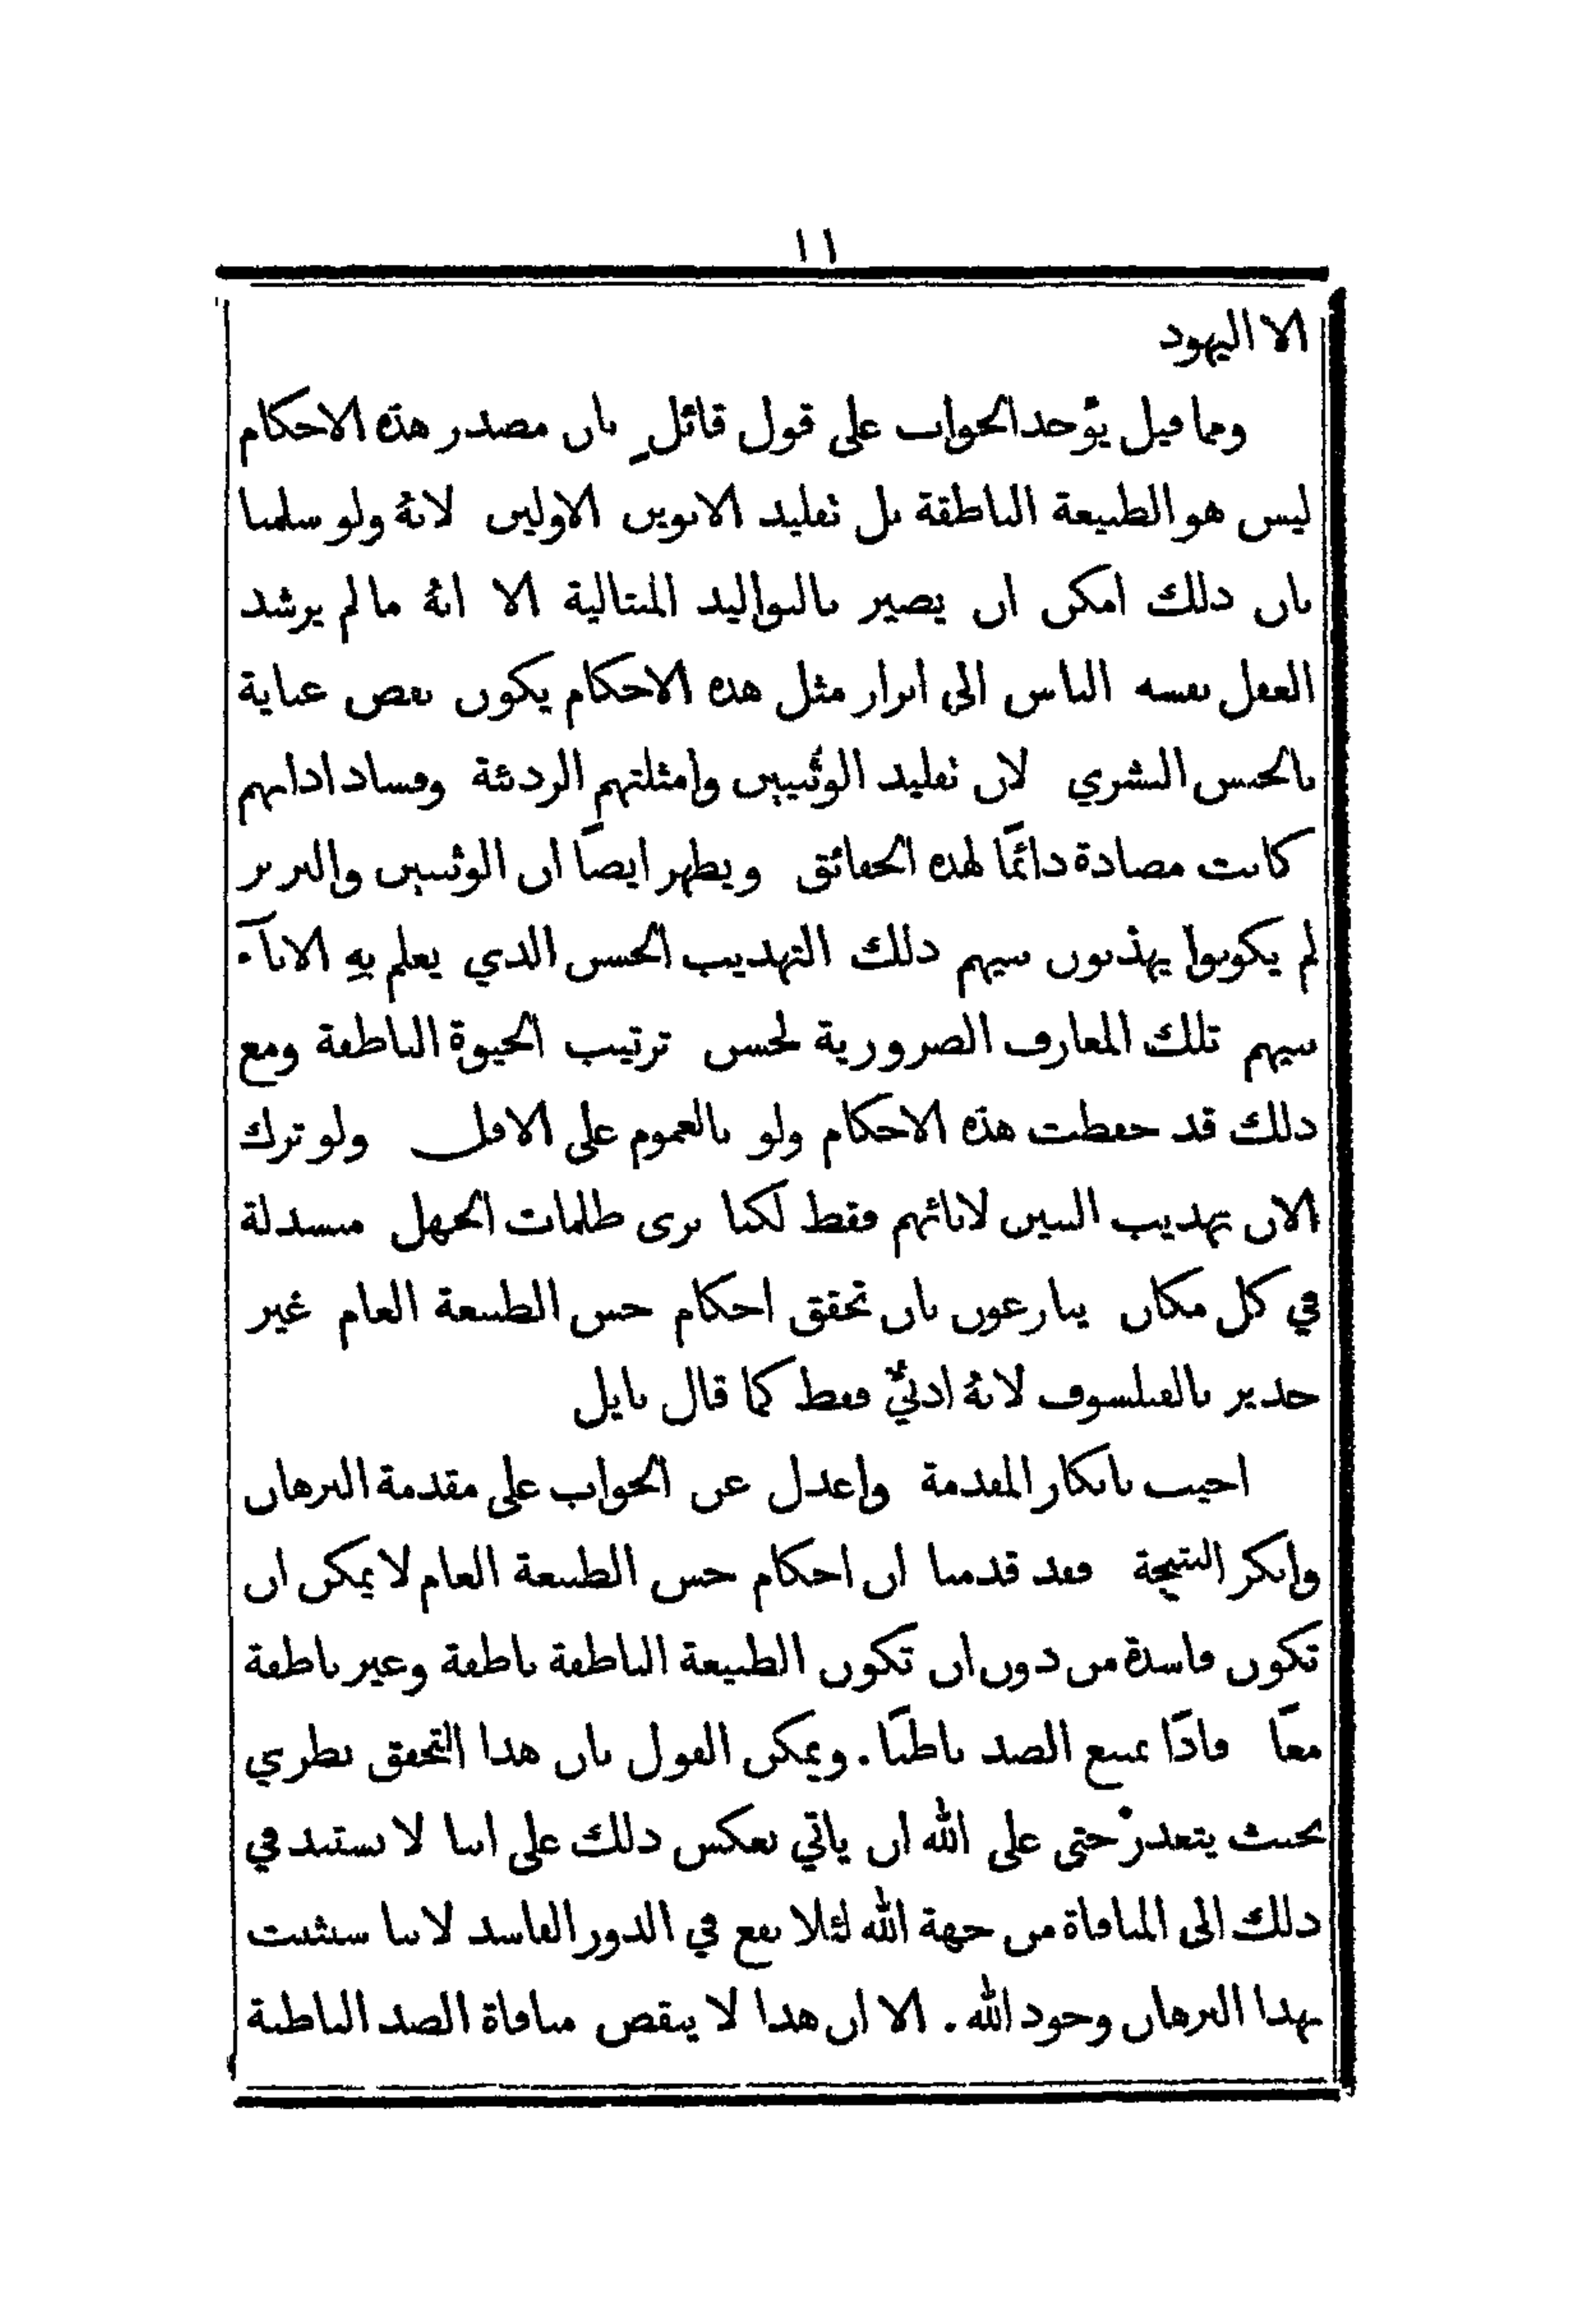 ١١
الا اليهود
ومما قيل يؤخذ الجواب على قول قائلٍ بان مصدر هذه الاحكام
ليس هو الطبيعة الناطقة بل تقليد الابوين الاولين لانهُ ولو سلمنا
بان ذلك امكن ان يصير بالتواليد المتتالية الا انهُ ما لم يرشد
العقل نفسه الناس الى ابراز مثل هذه الاحكام يكون بعض عناية
بالجنس البشري لان تقليد الوثنيين وامثلتهم الردئة وفساد ادابهم
كانت مضادة دائمًا لهذه الحقائق ويظهر ايضًا ان الوثنيين والبربر
لم يكونوا يهذبون بنيهم ذلك التهذيب الحسن الذي يعلم بهِ الاباء
بنيهم تلك المعارف الضرورية لحسن ترتيب الحيوة الناطقة ومع
ذلك قد حفظت هذه الاحكام ولو بالعموم على الاقل ولو ترك
الان تهذيب البنين لابائهم فقط لكنا نرى ظلمات الجهل منسدلة
في كل مكان ينازعون بان تحقق احكام حس الطبيعة العام غير
جدير بالفيلسوف لانهُ ادبيٌّ فقط كما قال بايل
اجيب بانكار المقدمة واعدل عن الجواب على مقدمة البرهان
وانكر النتيجة فقد قدمنا ان احكام حس الطبيعة العام لا يمكن ان
تكون فاسدة من دون ان تكون الطبيعة الناطقة ناطقة وغير ناطقة
معًا فاذًا يمتنع الضد باطنًا . ويمكن القول بان هذا التحقق نظري
بحيث يتعذر حتى على الله ان ياتي بعكس ذلك على اننا لا نستند في
ذلك الى المنافاة من جهة الله لئلا نقع في الدور الفاسد لاننا سنثبت
بهذا البرهان وجود الله . الا ان هذا لا ينقص منافاة الضد الباطنة